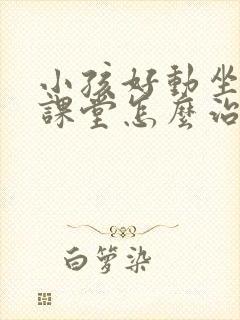 小孩好動坐
課堂怎麼治
白箩染